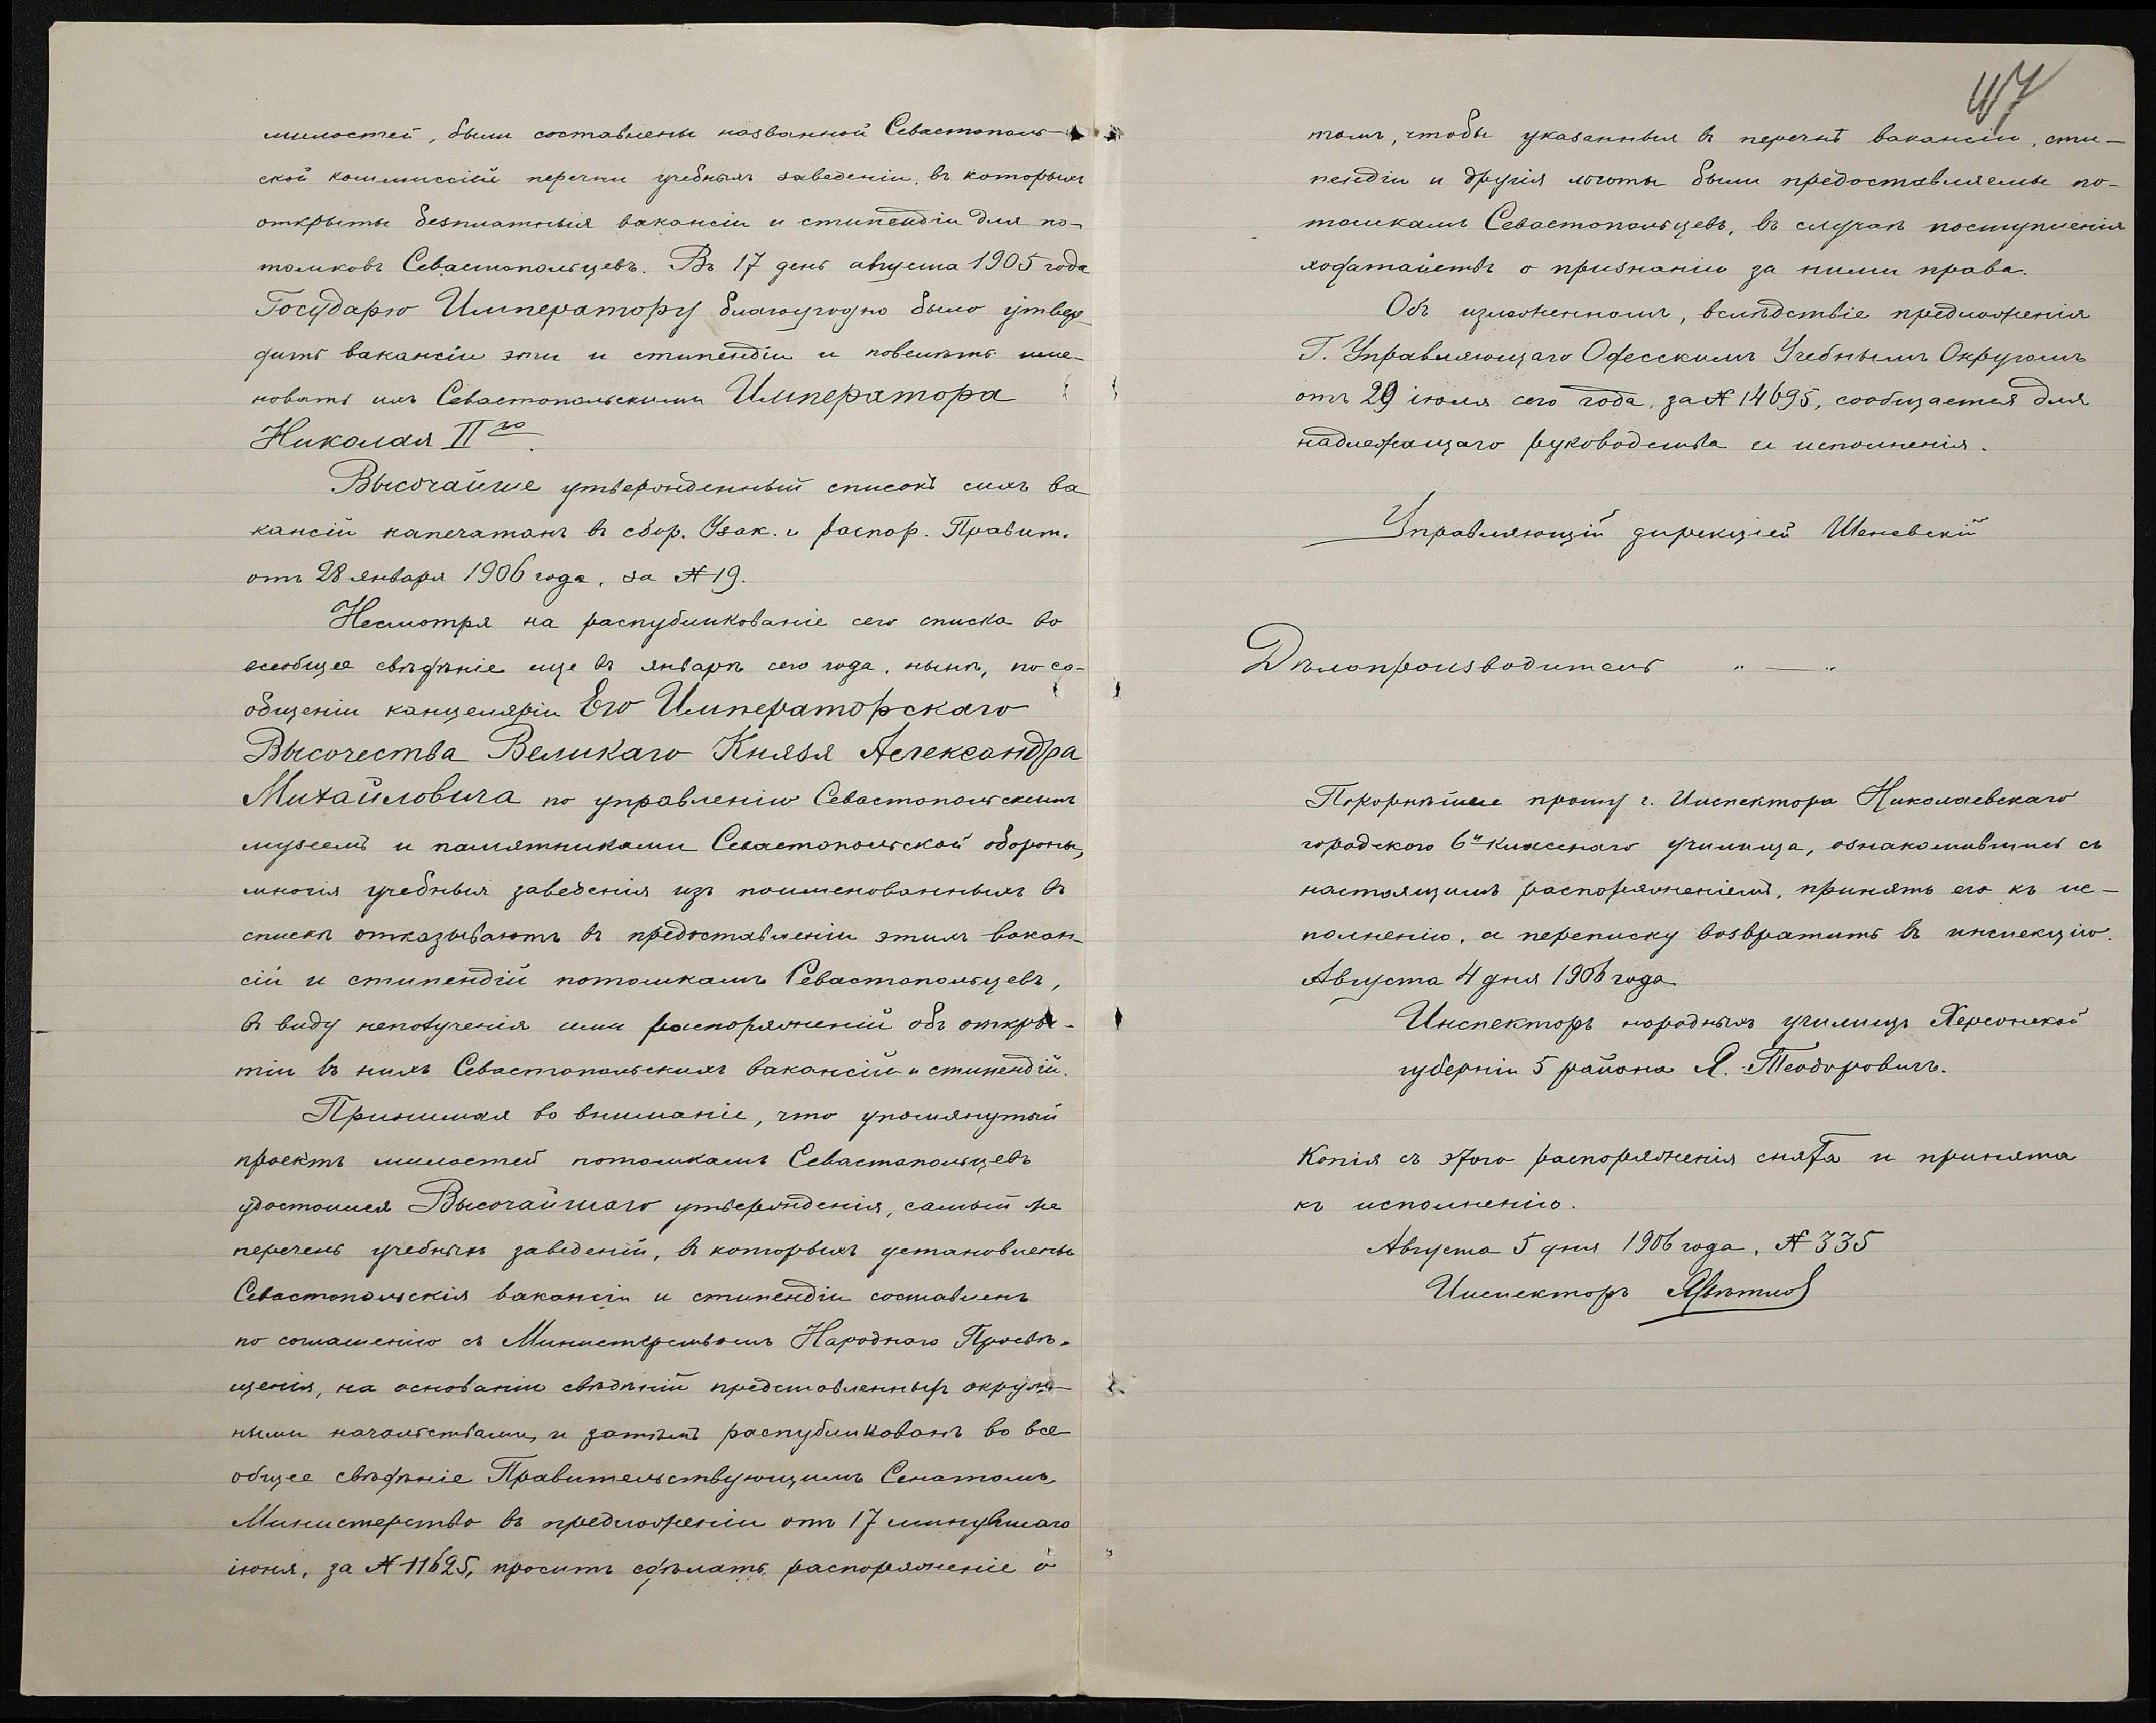 милостей, были составлены названной Севастополь-
ской коммиссіей перечни учебныхъ заведеній, въ которыхъ
открыты безплатныя вакансіи и стипендіи для по-
томковъ Севастопольцевъ. Въ 17 день августа 1905 года
Государю Императору благоугодно было утвер-
дить вакансіи эти и стипендіи и повелѣть име-
новать ихъ Севастопольскими Императора
Николая II го.
Высочайше утвержденный списокъ сихъ ва
кансій напечатанъ въ сбор. Узак. и распор. Правит.
отъ 28 января 1906 года, за № 19.
Несмотря на распубликованіе сего списка во
всеобщее свѣдѣніе еще въ январѣ сего года, нынѣ, по со-
общенію канцеляріи Его Императорскаго
Высочества Великаго Князя Александра
Михайловича по управленію Севастопольскимъ
музеемъ и памятниками Севастопольской обороны,
многія учебныя заведенія изъ поименованныхъ въ
спискѣ отказываютъ въ предоставленіи этихъ вакан-
сій и стипендій потомкамъ Севастопольцевъ,
въ виду неполученія ими распоряженій объ откры-
тіи въ нихъ Севастопольскихъ вакансій и стипендій.
Принимая во вниманіе, что упомянутый
проектъ милостей потомкамъ Севастопольцевъ
удостоился Высочайшаго утвержденія, самый же
перечень учебныхъ заведеній, въ которыхъ установлены
Севастопольскія вакансіи и стипендіи составленъ
по соглашенію съ Министерствомъ Народнаго Просвѣ-
щенія, на основаніи свѣдѣній представленныхъ окруж-
ными начальствами, и затѣмъ распубликованъ во все
общее свѣдѣніе Правительствующимъ Сенатомъ,
Министерство въ предложеніи отъ 17 минувшаго
іюня, за № 11625, проситъ сдѣлать распоряженіе о
47
томъ, чтобы указанныя въ перечнѣ вакансіи, сти-
пендіи и другія льготы были предоставляемы по-
томкамъ Севастопольцевъ, въ случаѣ поступленія
ходатайствъ о признаніи за ними права.
Объ изложенномъ, вслѣдствіе предложенія
Г. Управляющаго Одесскимъ Учебнымъ Округомъ
отъ 29 іюля сего года, за № 14695, сообщается для
надлежащаго руководства и исполненія.
Управляющій дирекціей Шеневскій
Дѣлопроизводитель " — "
Покорнѣйше прошу г. Инспектора Николаевскаго
городского 6 кл класснаго училища, ознакомившись съ
настоящимъ распоряженіемъ, принять его къ ис-
полненію, а переписку возвратить въ инспекцію.
Августа 4 дня 1906 года
Инспекторъ народныхъ училищъ Херсонской
губерніи 5 района Я. Теодоровичъ.
Копія съ этого распоряженія снята и принята
къ исполненію.
Августа 5 дня 1906 года, № 335
Инспекторъ